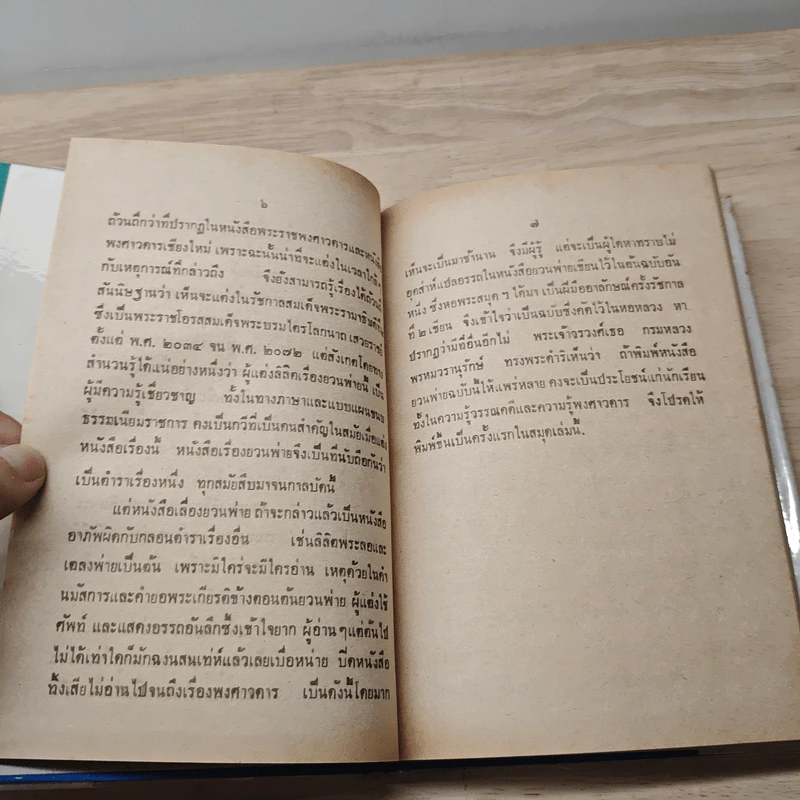 ๖
ถ้วนถี่กว่าที่ปรากฏในหนังสือพระราชพงศาวดารและหนังสือ
พงศาวดารเชียงใหม่ เพราะฉะนั้นน่าที่จะแต่งในเวลาใกล้ๆ
กับเหตุการณ์ที่กล่าวถึง จึงยังสามารถรู้เรื่องได้ถ้วนถี่
สันนิษฐานว่า เห็นจะแต่งในรัชกาลสมเด็จพระรามาธิบดีที่
ซึ่งเป็นพระราชโอรสสมเด็จพระบรมไตรโลกนาถ เสวยราชย์
ตั้งแต่ พ.ศ. ๒๐๓๔ จน พ.ศ. ๒๐๗๒ แต่สังเกตโดยทาง
สำนวนรู้ได้แน่อย่างหนึ่งว่า ผู้แต่งลิลิตเรื่องยวนพ่ายนี้ เป็น
ผู้มีความรู้เชี่ยวชาญ ทั้งในทางภาษาและแบบแผนขนบ
ธรรมเนียมราชการ คงเป็นกวีที่เป็นคนสำคัญในสมัยเมื่อแต่ง
หนังสือเรื่องนี้ หนังสือเรื่องยวนพ่ายจึงเป็นที่นับถือกันว่า
เป็นตำราเรื่องหนึ่ง ทุกสมัยสืบมาจนกาลบัดนี้
แต่หนังสือเลื่องยวนพ่าย ถ้าจะกล่าวแล้วเป็นหนังสือ
อาภัพผิดกับกลอนตำราเรื่องอื่น เช่นลิลิตพระลอและ
เตลงพ่ายเป็นต้น เพราะมิใคร่จะมีใครอ่าน เหตุด้วยในคำ
นมัสการและคำยอพระเกียรติข้างตอนต้นยวนพ่าย ผู้แต่งใช้
ศัพท์ และแสดงอรรถอันลึกซึ้งเข้าใจยาก ผู้อ่านๆแต่ต้นไป
ไม่ได้เท่าใดก็มักฉงนสนเท่ห์แล้วเลยเบื่อหน่าย ปิดหนังสือ
ทิ้งเสียไม่อ่านไปจนถึงเรื่องพงศาวดาร เป็นดังนี้โดยมาก
๗
เห็นจะเป็นมาช้านาน จึงมีผู้รู้ แต่จะเป็นผู้ใดหาทราบไม่
อุตส่าห์แปลอรรถในหนังสือยวนพ่ายเขียนไว้ในต้นฉบับอัน
หนึ่ง ซึ่งหอพระสมุดฯ ได้มา เป็นฝีมืออาลักษณ์ครั้งรัชกาล
ที่ ๒ เขียน จึงเข้าใจว่าเป็นฉบับซึ่งคัดไว้ในหอหลวง หา
ปรากฏว่ามีที่อื่นอีกไม่ พระเจ้าวรวงศ์เธอ กรมหลวง
พรหมวรานุรักษ์ ทรงพระดำริเห็นว่า ถ้าพิมพ์หนังสือ
ยวนพ่ายฉบับนี้ให้แพร่หลาย คงจะเป็นประโยชน์แก่นักเรียน
ทั้งในความรู้วรรณคดีและความรู้พงศาวดาร จึงโปรดให้
พิมพ์ขึ้นเป็นครั้งแรกในสมุดเล่มนี้.